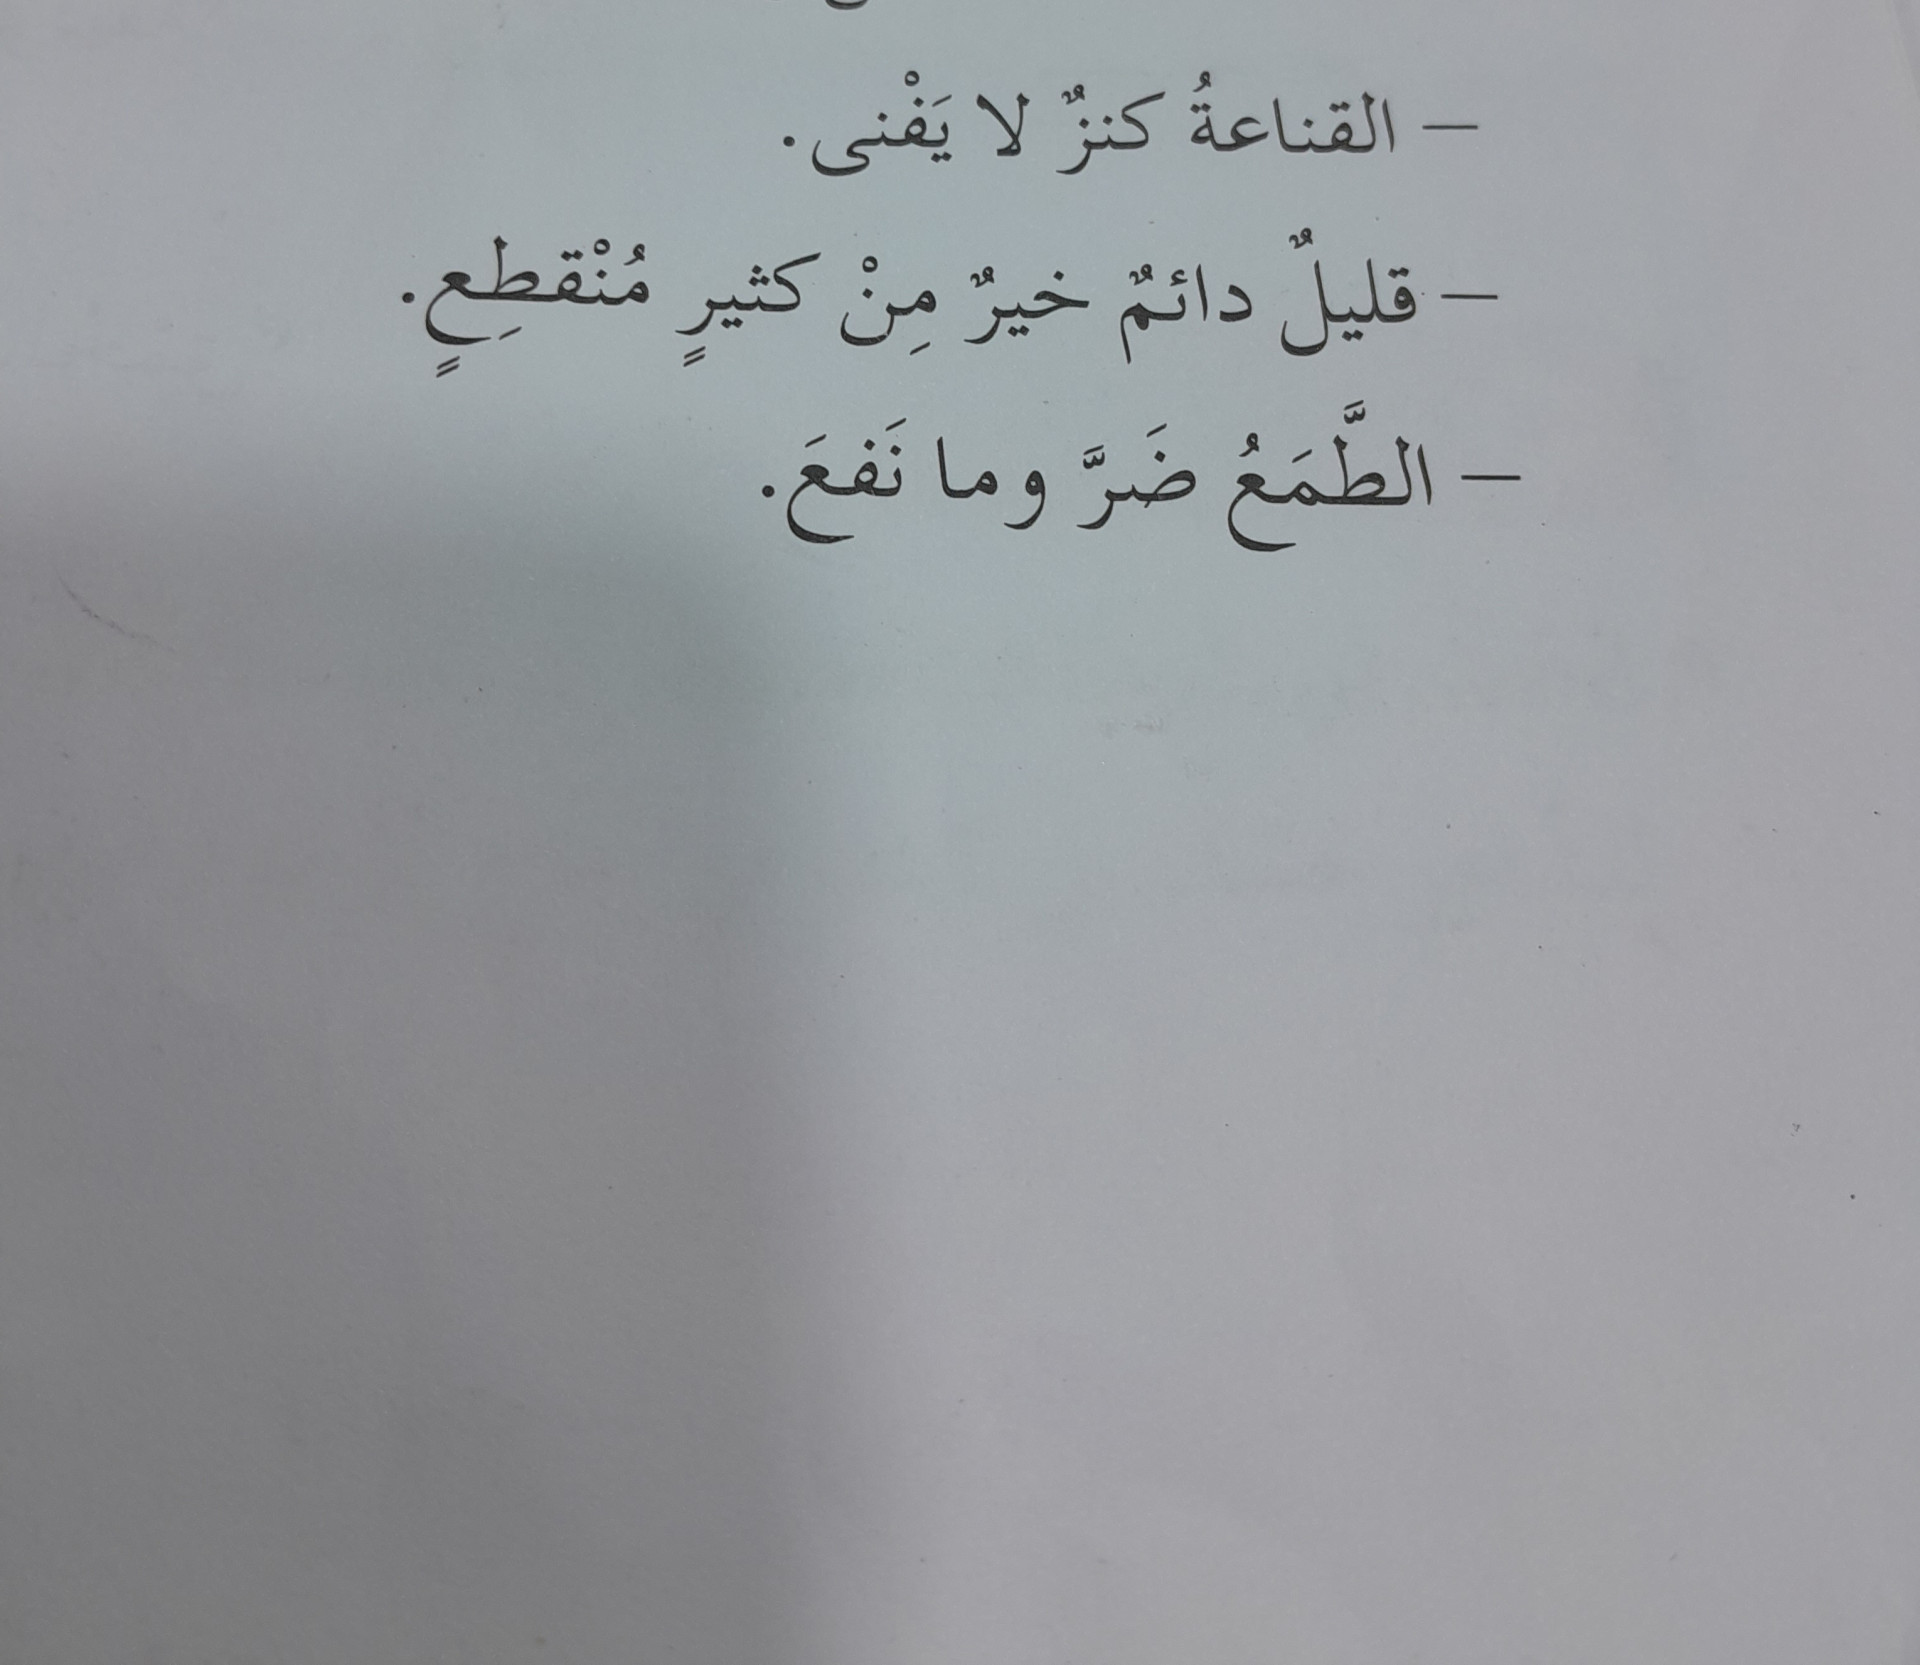 – القناعةُ كنزٌ لا يَفْنى.
– قليلٌ دائمٌ خيرٌ مِنْ كثيرٍ مُنْقطِعٍ.
– الطَّمَعُ ضَرَّ وما نَفعَ.